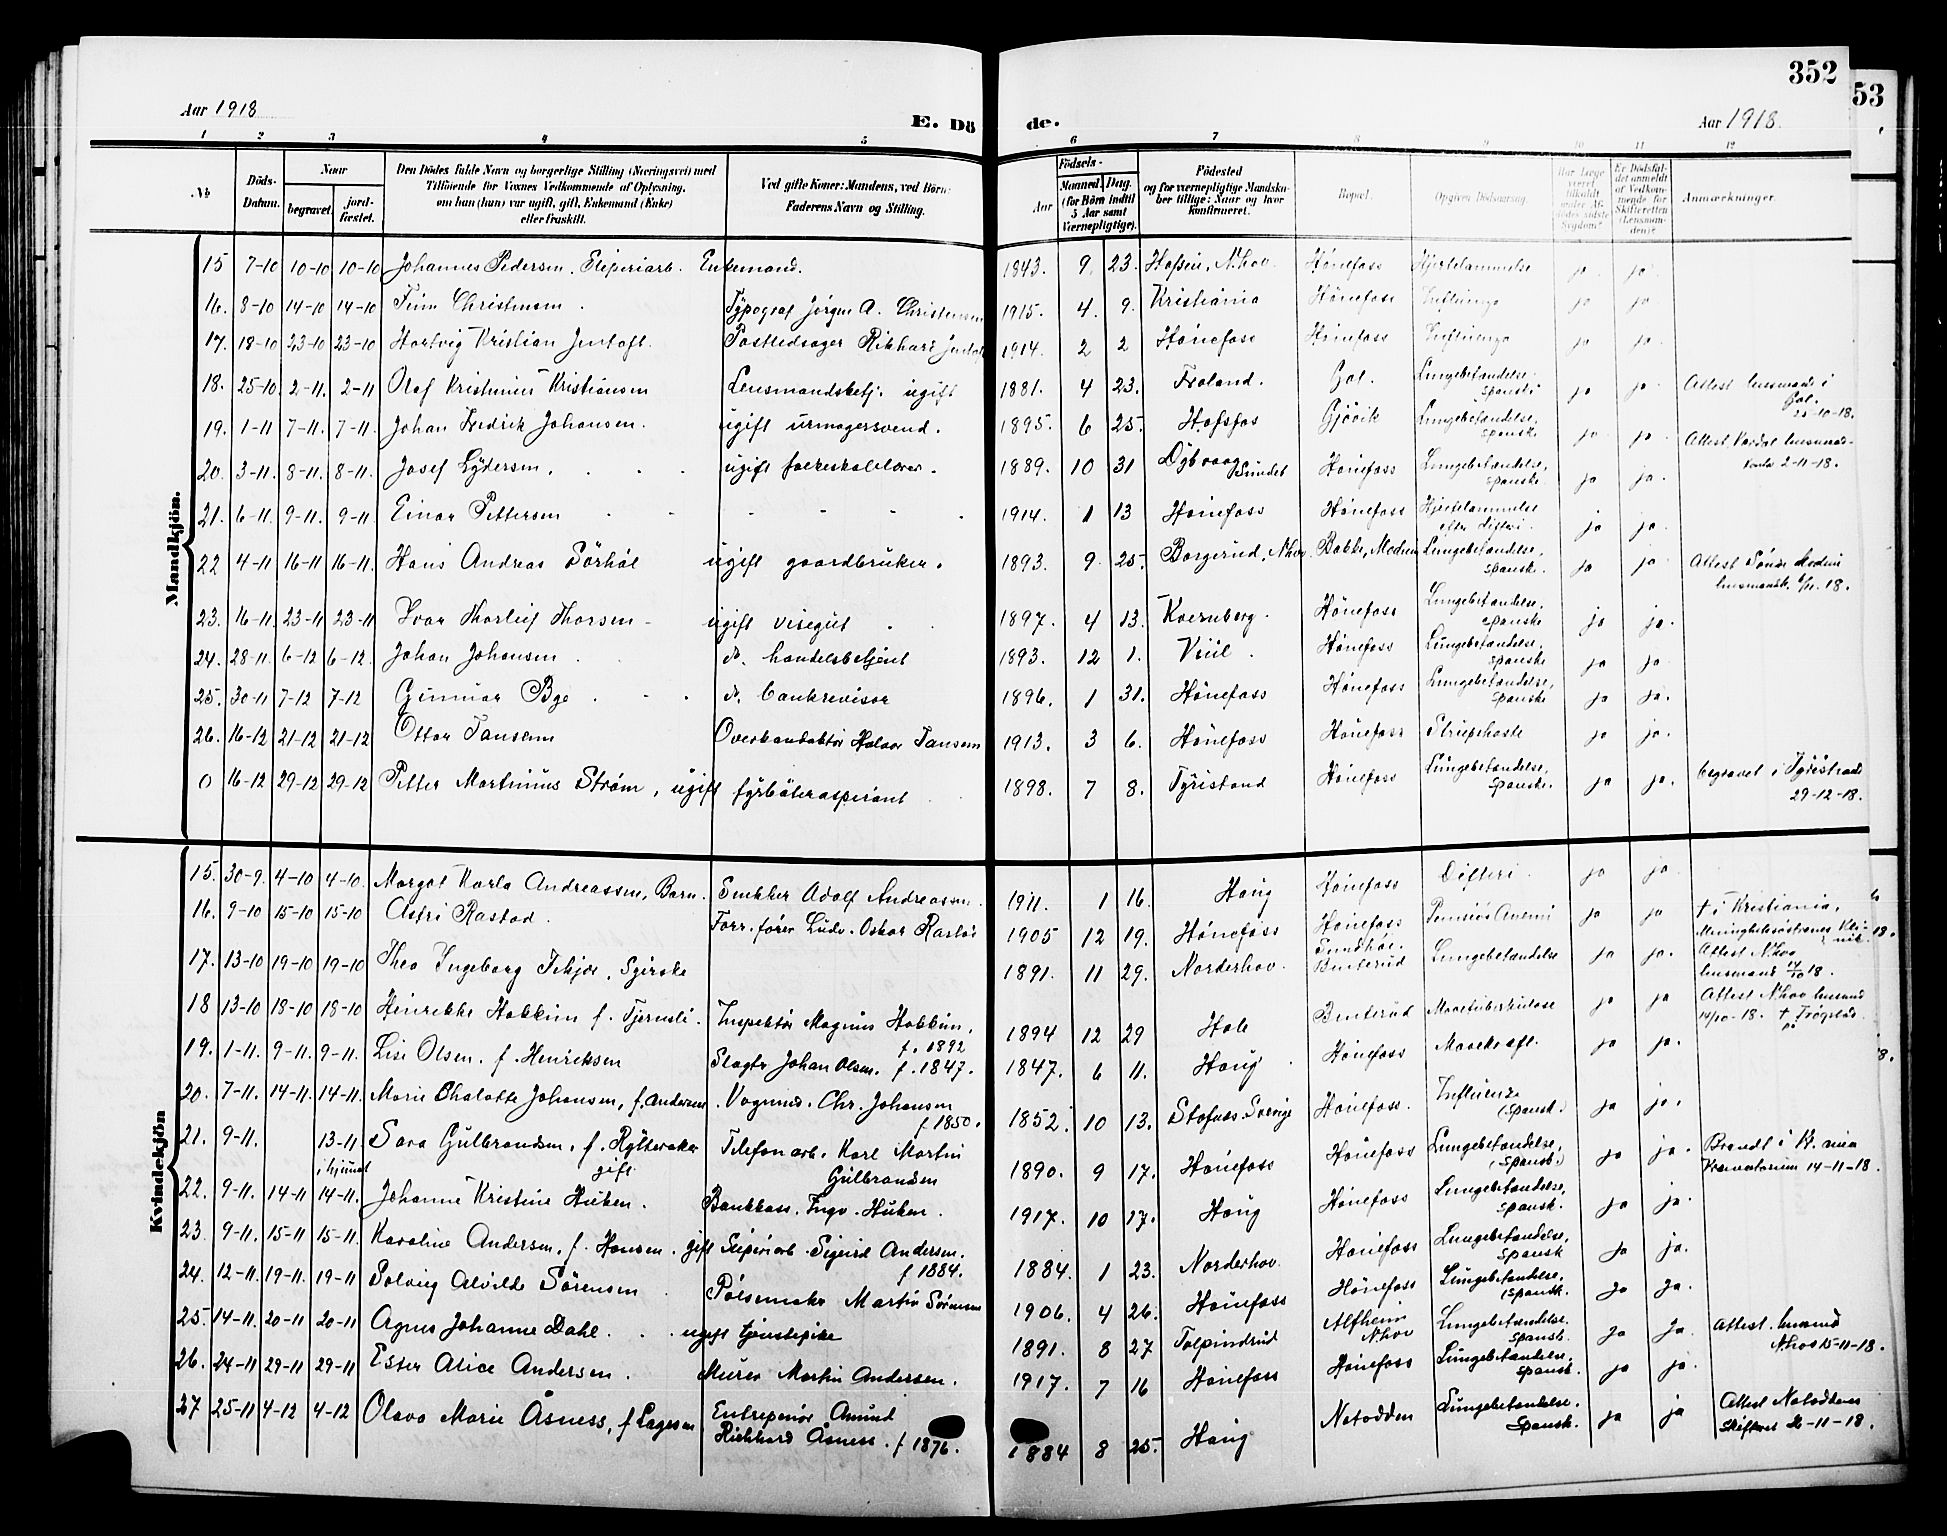 352
53
Aar 1918
E. Dö
de.
Aar 1918.
1 2 3 4 5 6 7 8 9 10 11 12
No
Döds-Datum.
Naar
begravet.
jord-fæstet.
Den Dödes fulde Navn og borgerlige Stilling (Næringsvei) med
Tilföiende for Voxnes Vedkommende af Oplysning,
om han (hun) var ugift, gift, Enkemand (Enke)
eller fraskilt.
Ved gifte Koner: Mandens, ved Börn:
Faderens Navn og Stilling.
Födsels-
Aar
Maaned. Dag.
(for Börn indtil
5 Aar samt
Værnepligtige).
Födested
og for værnepligtige Mandsku-
ber tillige: Naar og hvor
konfirmeret.
Bopæl.
Opgiven Dödsaarsag.
Har Læge
været
tilkaldt
under Af-
dödes sidste
Sygdom?
Er Dödsfal-
det anmeldt
af Vedkom-
mende for
Skifteretten
(Lensman-
den)?
Anmærkninger.
Mandkjön.
15 7-10 10-10 10-10 Johannes Pedersen. Sliperiarb. Enkemand. 1843. 9. 23. Hofsen, N.hov. Hönefoss Hjertelammelse ja. ja.
16. 8-10 14-10 14-10 Finn Christensen. Typograf Jörgen A. Christensen 1915. 4. 9. Kristiania Hönefoss Influenza ja ja
17. 18-10 23-10 23-10 Hartvig Kristian Jentoft. Postledsager Rikhard Jentoft 1914. 2 2 Hönefoss Hönefoss Influenza ja ja.
18. 25-10 2-11. 2-11 Olaf Kristinius Kristiansen Lensmandsbetj. ugift 1881. 4 23. Froland. Gol. Lungebetændelse. spansk. ja ja. Attest lensmand i
Gol.
25-10-18.
19. 1-11 7-11. 7-11. Johan Fredrik Johansen. ugift urmagersvend. 1895. 6 25. Hofsfos Gjövik Lungebetændelse, spanske ja ja. Attest Vardal lensmands-
kontor 2-11-18.
20. 3-11. 8-11 8-11. Josef Lydersen. ugift folkeskolelærer. 1889. 10 31 Dybvaag Sundet Hönefoss Lungebetændelse, spanske. ja ja.
21. 6-11. 9-11. 9-11 Einar Pettersen 1914. 1 13 Hönefoss Hönefoss Hjertelammelse efter difteri. ja ja.
22 4-11 16-11 16-11. Hans Andreas Sörhöl ugift gaardbruker. 1893. 9. 25. Borgerud, N.hov. Bakke, Modum Lungebetændelse, spanske. ja ja. Attest Söndre Modum
lensmandsk. 6/11. 18.
23. 16-11. 23-11 23-11 Ivar Thorleif Thorsen ugift visegut 1897. 4 13. Kvernberg. Hönefoss Lungebetændelse, spanske ja ja.
24. 28-11. 6-12 6-12. Johan Johansen d. handelsbetjent 1893. 12 1. Viul. Hönefoss Lungebetændelse, spanske ja ja.
25. 30-11 7-12 7-12 Gunnar Bye d. bankrevisor 1896. 1 31. Hönefoss Hönefoss Lungebetændelse, Spanske ja ja.
26. 16-12 21-12 21-12 Ottar Fansenn Overkonduktör Halvor Fansenn 1913. 3 6. Hönefoss Hönefoss Strupehoste ja ja.
0 16-12 29-12 29-12 Petter Martinius Ström, ugift fyrböteraspirant 1898. 7 8. Tyristrand Hönefoss Lungebetændelse, Spanske. ja ja. begravet i Tyristrand
29-12-18.
Kvindekjön
15. 30-9. 4-10 4-10. Margot Karla Andreassen, Barn. Snekker Adolf Andreassen. 1911. 1 16. Haug Hönefoss Difteri. ja ja.
16. 9-10 15-10 15-10 Astri Rastad. Forr.förer Ludv. Oskar Rastad 1905 12 19. Hönefoss Hönefoss Perniciös Anemi ja ja † i Kristiania,
Menighetssöstrenes Kli-
nik.
17. 13-10 19-10 19-10 Thea Ingeborg 1891. 11 29. Norderhov. Benterud Lungebetændelse ja ja. Attest N.hov
lensmand 14/10 18.
18 13-10 18-10 18-10 Henrikke Hakkim f. Tjernsli. Inspektör Magnus Hakkim,
f. 1892 1894 12 29 Hole Benterud Mavetuberkulose ja ja Attest N.hov lensmand
14/10-18.
19. 1-11 9-11. 9-11. Lise Olsen, f. Henriksen Slagter Johan Olsen. f. 1847. 1847. 6 11. Haug Hönefoss Mavekræft. ja ja.
20. 7-11. 14-11 14-11. Marie Chalotte Johansen, f. Andersen Vognmd. Chr. Johansen
f 1850. 1852. 10 13. Stafnäs Sverige Hönefoss. Influenza (Spansk.) ja ja.
21. 9-11. 13-11 i hjemmet Sara Gulbrandsen, f. Rytteraker
gift Telefonarb. Karl Martin
Gulbrandsen 1890. 9 17. Hönefoss Hönefoss Lungebetændelse, (Spansk.) ja ja. Brændt i Kr.ania
Krematorium 14-11-18.
22. 9-11. 14-11 14-11. Johanne Kristine Huken. Bankkass. Ingv. Huken. 1917. 10 17. Haug Hönefoss Lungebetændelse, Spansk. ja ja.
23. 9-11. 15-11 15-11. Karoline Andersen, f. Hansen. gift Sliperiarb. Sigurd Andersen.
f 1884. 1884. 1 23. Norderhov. Hönefoss Lungebetændelse, Spansk ja ja.
24. 12-11. 19-11. 19-11 Solveig Alvilde Sörensen Pölsemaker Martin Sörensen 1906. 4 26. Hönefoss Hönefoss Lungebetændelse, (Spansk. ja ja.
25. 14-11. 20-11 20-11 Agnes Johanne Dahl. ugift tjenestepike 1891. 8 27 Tolpinrud Alfheim N.hov Lungebetændelse. Spansk. ja ja. Attest. lensmand
N.hov 15-11-18.
26. 24-11 29-11 29-11 Ester Alice Andersen. Murer Martin Andersen. 1917. 7 16 Hönefoss Hönefoss Lungebetændelse, Spansk. ja ja.
27 25-11 4-12 4-12 Olava Marie Åsness, f. Lagesen Entreprenör Amund
Rikhard Åsness. f 1876. 1884 8 25. Haug Notodden Lungebetændelse. Spansk. ja ja Attest Notoddens
Skifteret 26-11-18.